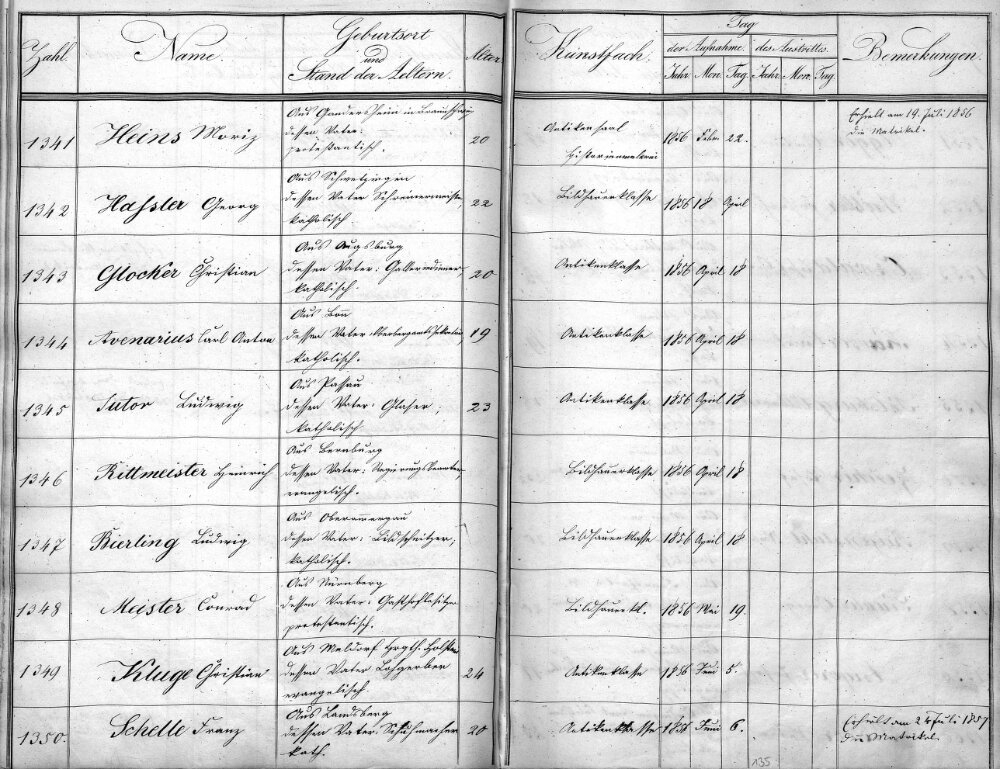 Zahl. Name. Geburtsort und Stand der Aeltern. Alter Kunstfach. Tag der Aufnahme. des Austrittes. Bemerkungen.
Jahr Mon. Tag. Jahr. Mon. Tag.
Aus Gandersheim in Braunschweig
1341 Heins Moriz dessen Vater: 20 Antikensaal 1856 Febr 22. Erhielt am 19. Juli 1856
protestantisch. Historienmalerei die Matrikel.
Aus Schwetzingen
1342 Hassler Georg dessen Vater Schreinermeister, 22 Bildhauerklasse 1856 18 April
katholisch
Aus Augsburg
1343 Glocker Christian dessen Vater: Galleriediener 20 Antikenklasse 1856 April 18
katholisch.
Aus Bonn
1344 Avenarius Carl Anton dessen Vater: 19 Antikenklasse 1856 April 18
katholisch.
Aus Passau
1345 Sutor Ludwig dessen Vater: Glaser, 23 Antikenklasse 1856 April 18
katholisch
Aus Bernburg
1346 Rittmeister Heinrich dessen Vater: Bildhauerklasse 1856 April 18
evangelisch.
Aus Oberammergau
1347 Bierling Ludwig dessen Vater: Bildschnitzer, Bildhauerklasse 1856 April 18
katholisch.
Aus Nürnberg
1348 Meister Conrad dessen Vater: Gasthofbesitzer Bildhauerkl. 1856 Mai 19
protestantisch.
Aus Meldorf Hrgth. Holstein
1349 Kluge Christian dessen Vater Lohgerber 24 Antikenklasse 1856 Juni 5.
evangelisch
Aus Landsberg
1350. Schelle Franz dessen Vater: Schuhmacher 20 Antikenklasse Juni 6. Erhielt am 24 Juli 1857
kath. die Matrikel.
135